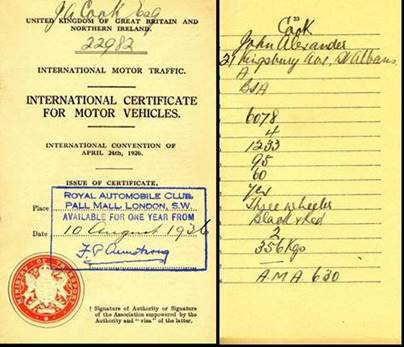 J A Cook Esq
UNITED KINGDOM OF GREAT BRITAIN AND
NORTHERN IRELAND.
22982
INTERNATIONAL MOTOR TRAFFIC.
INTERNATIONAL CERTIFICATE
FOR MOTOR VEHICLES.
INTERNATIONAL CONVENTION OF
APRIL 24th, 1926.
ISSUE OF CERTIFICATE.
ROYAL AUTOMOBILE CLUB
Place PALL MALL, LONDON, S.W.
AVAILABLE FOR ONE YEAR FROM
Date 10 August 1936
F.P. Armstrong
MINISTRY OF TRANSPORT
† Signature of Authority or Signature
of the Association empowered by the
Authority and "visa" of the latter.
Cook
John Alexander
27 Kingsbury Ave, St Albans
A
BSA
6078
4
1233
95
60
Yes
Three wheeler
Black & Red
2
356 Kgs
AMA 630